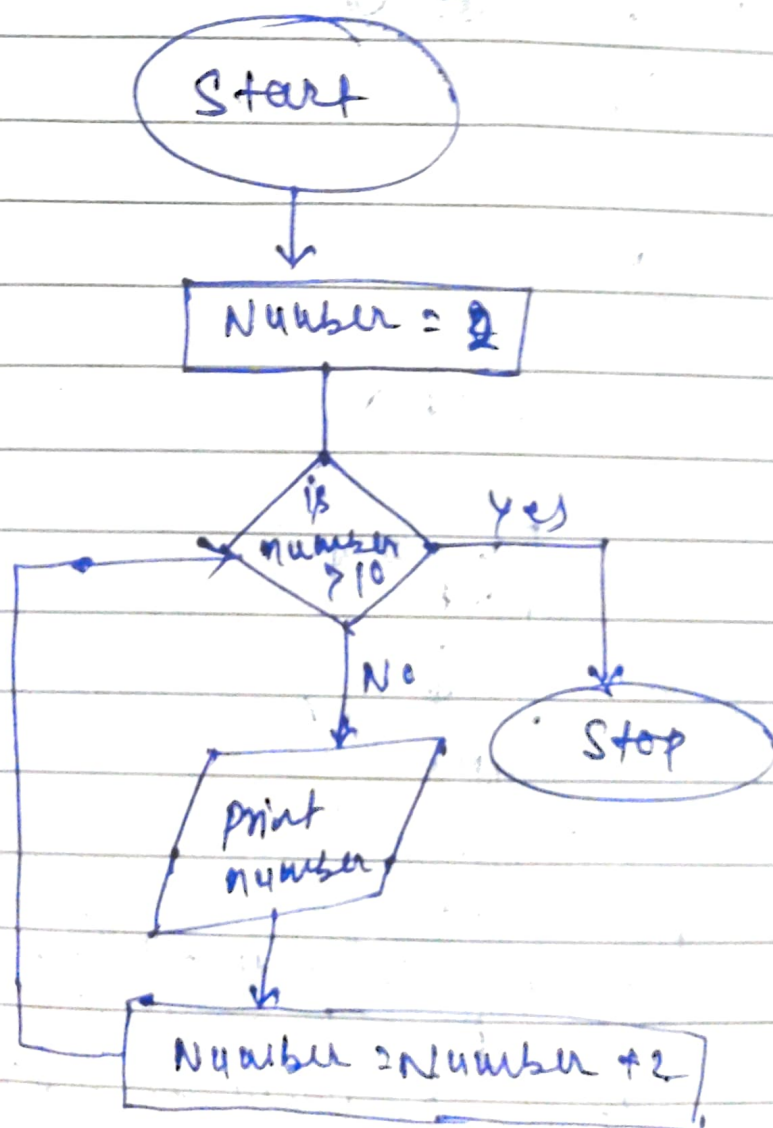 Start
Number = 2
is
number
>10
Yes
No
Stop
print
number
Number = Number + 2